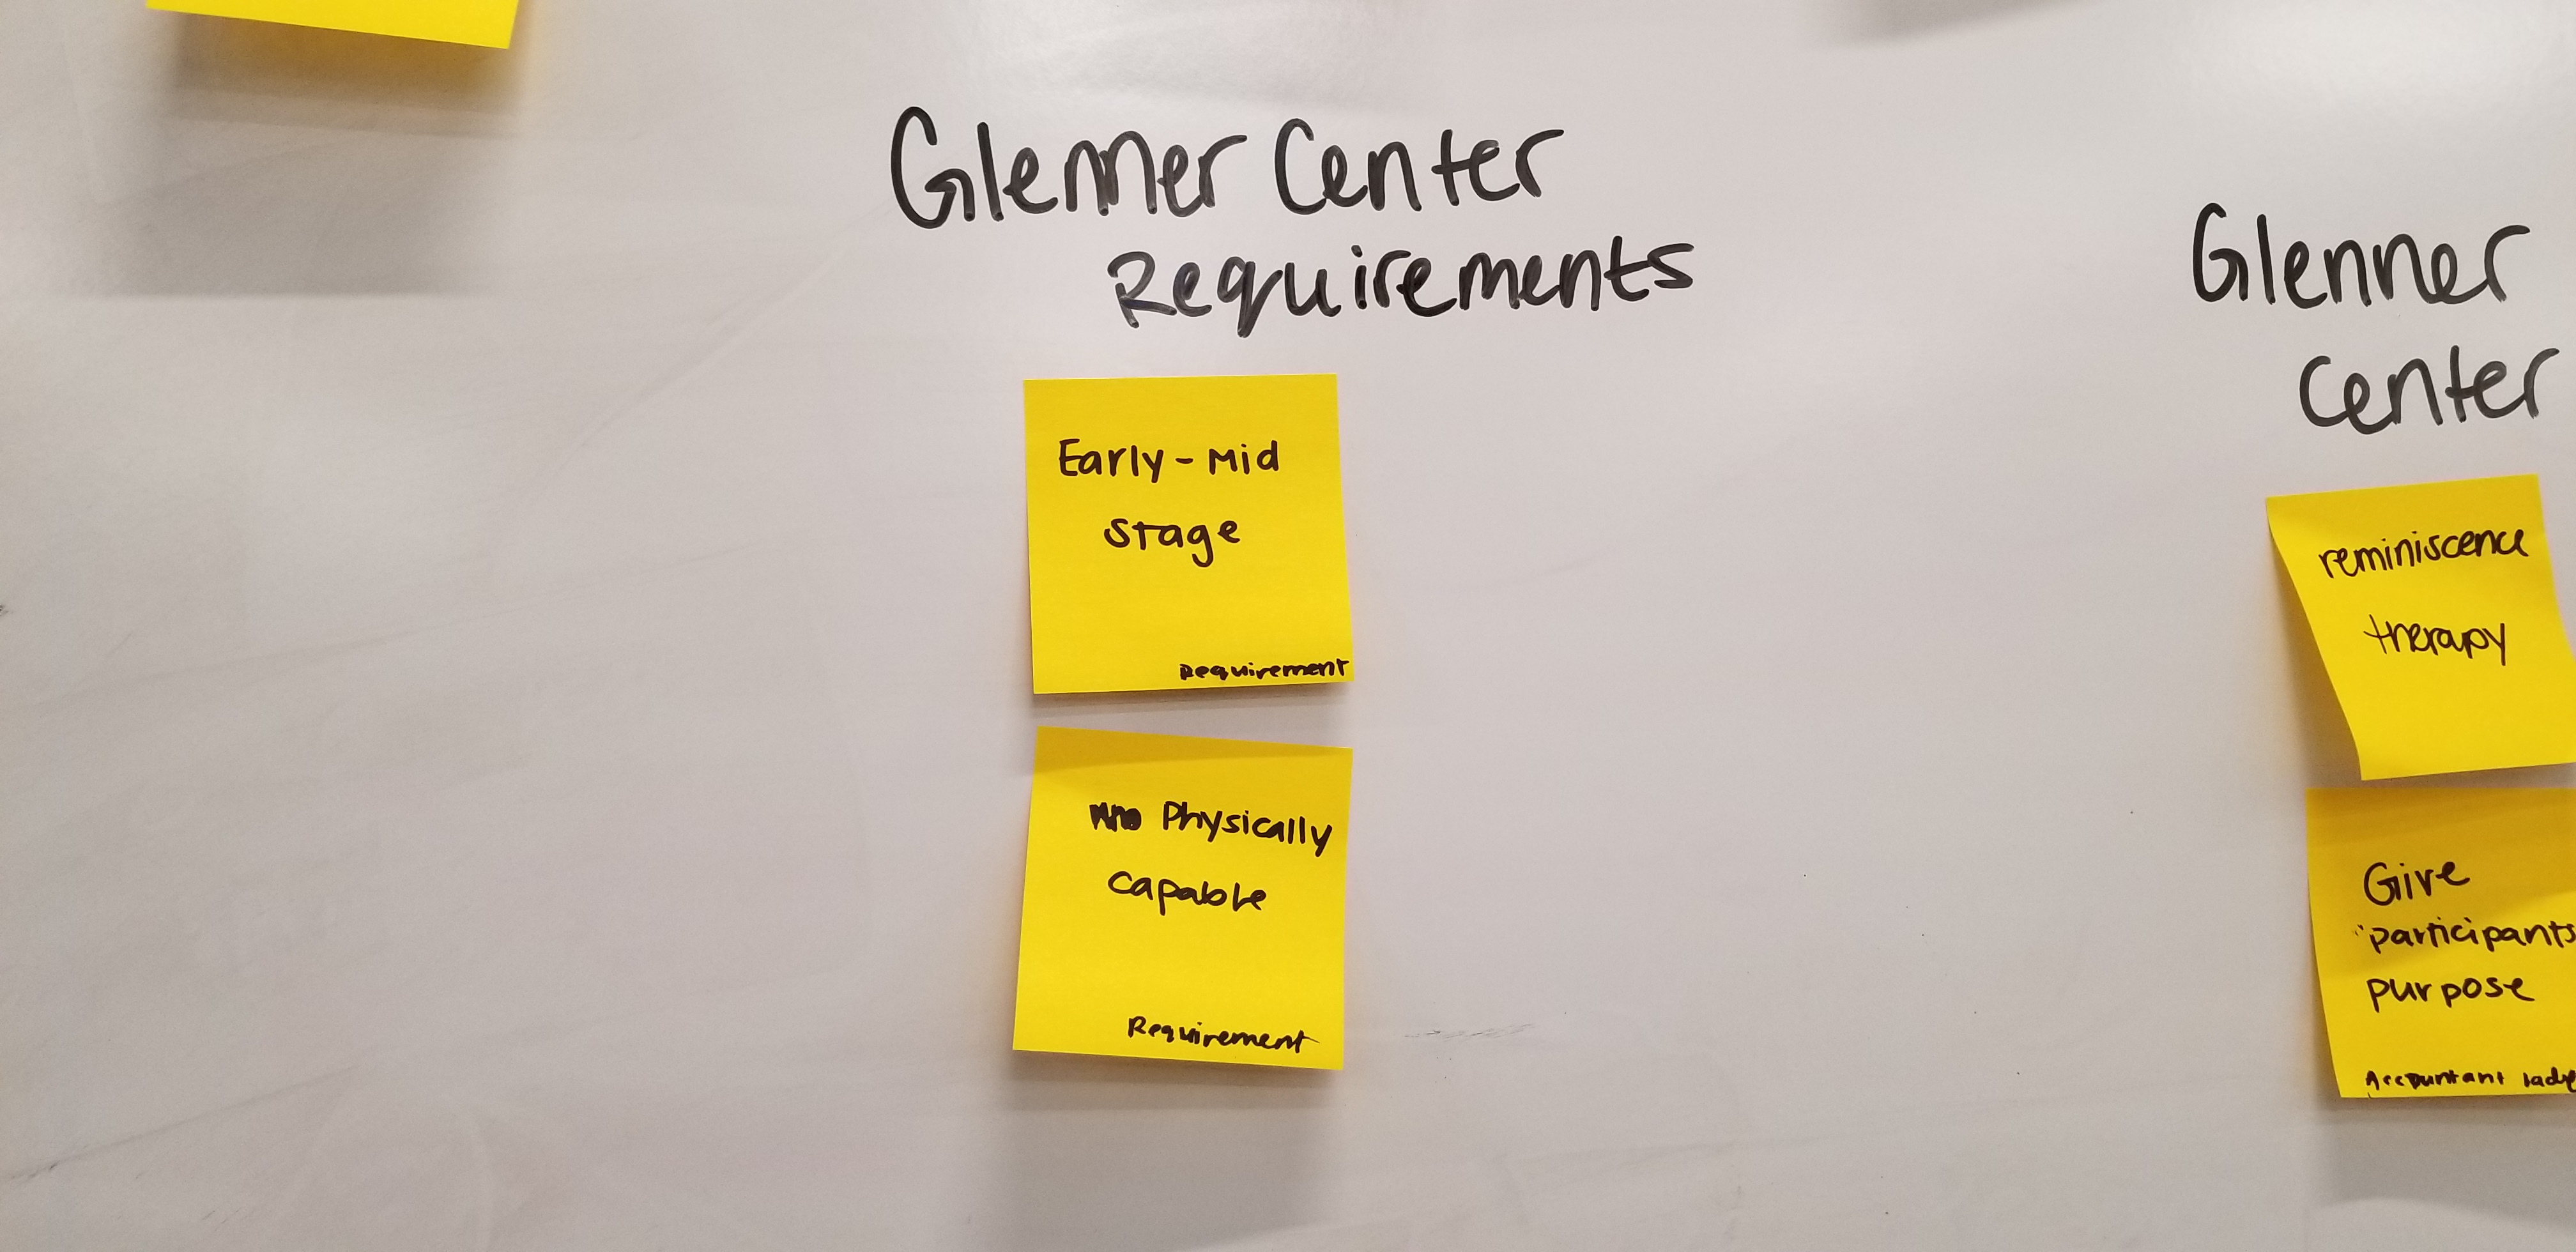 Glenner Center
Requirements
Early-Mid
Stage
Requirement
Physically
Capable
Requirement
Glenner
Center
reminiscence
therapy
Give
participants
purpose
Accountant lady